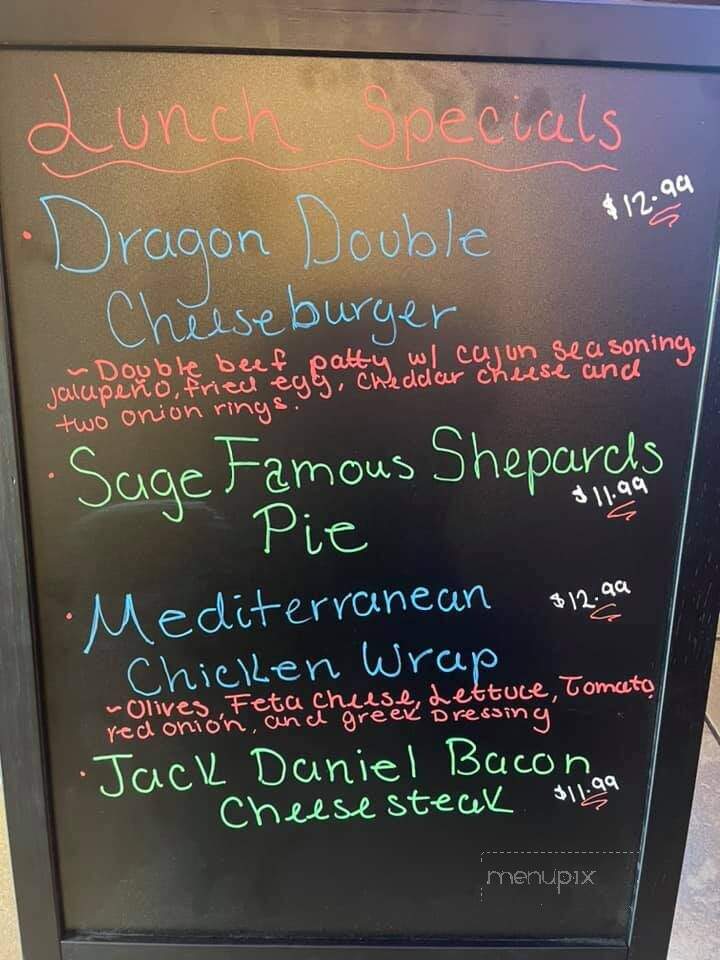 Lunch Specials
$12.99
• Dragon Double
Cheeseburger
~ Double beef patty w/ cajun seasoning,
jalapeño, fried egg, cheddar cheese and
two onion rings.
• Sage Famous Shepards
$11.99
Pie
• Mediterranean $12.99
Chicken Wrap
~ Olives, Feta cheese, Lettuce, Tomato,
red onion, and greek Dressing
• Jack Daniel Bacon
Cheesesteak $11.99
menupix